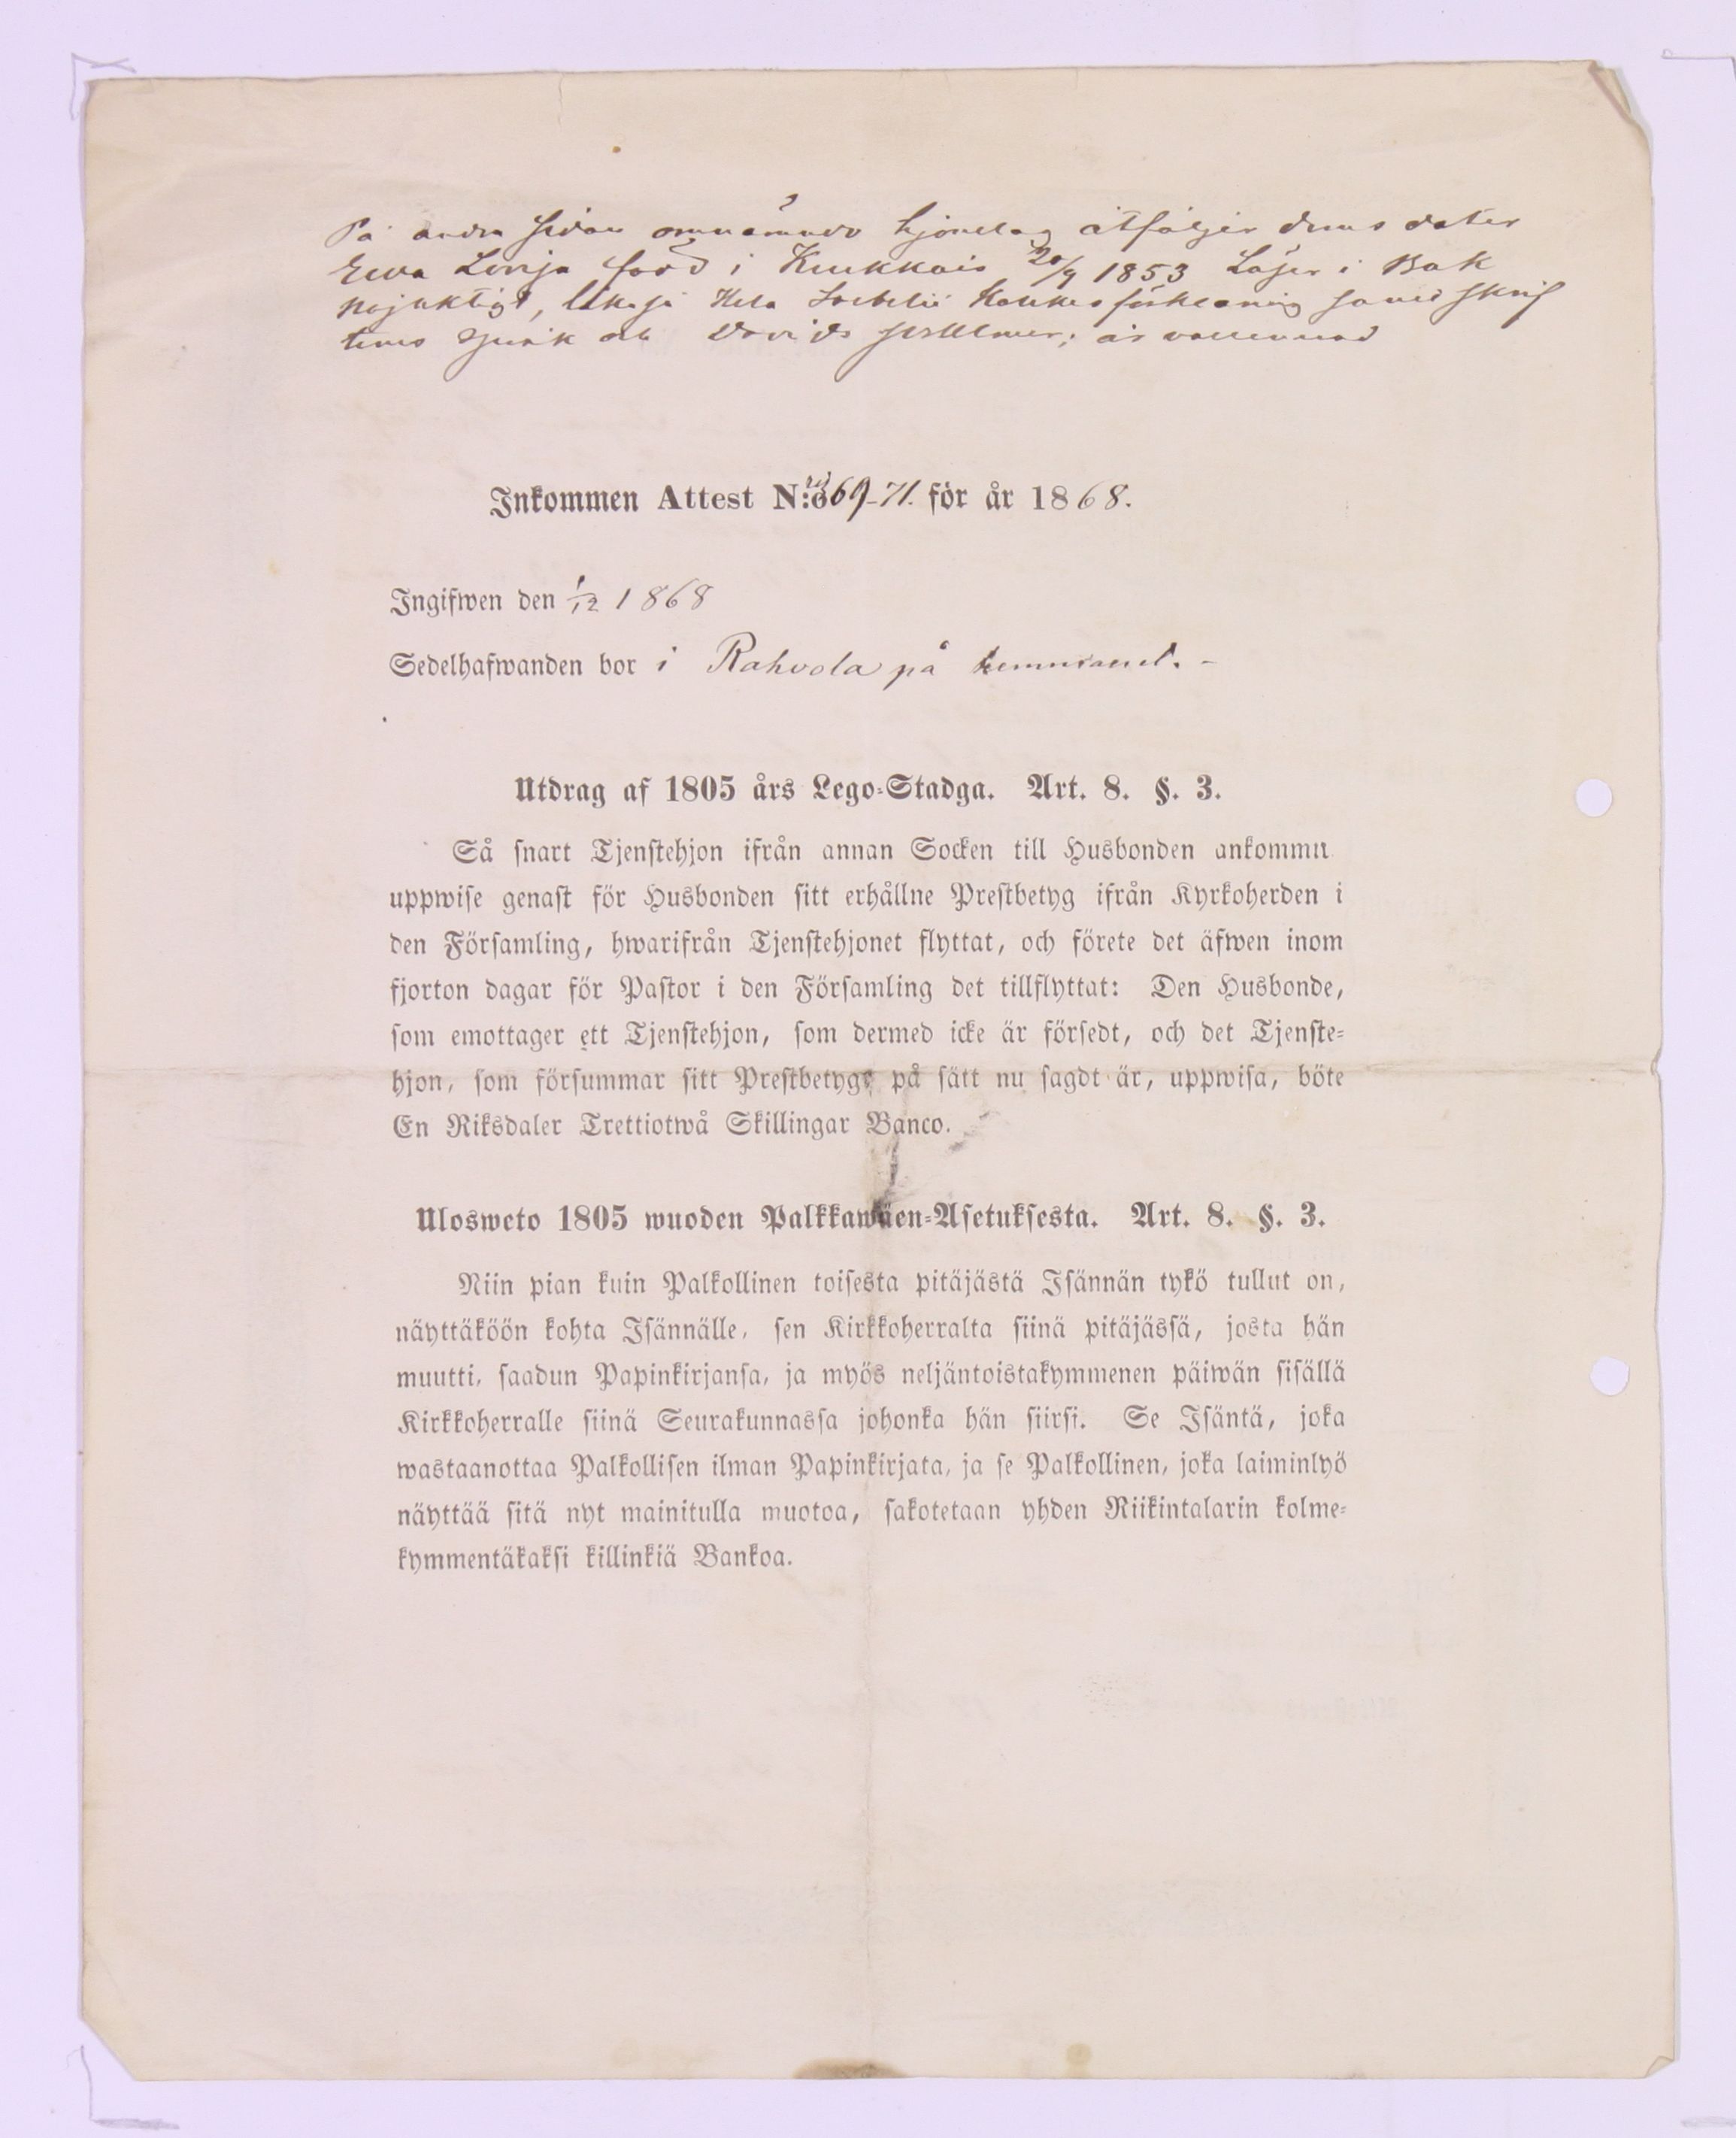 På andra sidan omnämnde hjonelag åtföljer deras dotter
Ewa Lovisa född i Kuukkais 20/9 1853 Läser i Bok
nöjaktigt, likaså Hela förklaring samt Skrif
tens språk och Davids Psalmer; är
Inkommen Attest N:o 69-71. för år 1868.
Ingifwen den 1/12 1868
Sedelhafwanden bor i Rahvola på
Utdrag af 1805 års Lego-Stadga. Art. 8. §. 3.
Så snart Tjenstehjon ifrån annan Socken till Husbonden ankommit
uppwise genast för Husbonden sitt erhållne Prestbetyg ifrån Kyrkoherden i
den Församling, hwarifrån Tjenstehjonet flyttat, och förete det äfwen inom
fjorton dagar för Pastor i den Församling det tillflyttat: Den Husbonde,
som emottager ett Tjenstehjon, som dermed icke är försedt, och det Tjenste-
hjon, som försummar sitt Prestbetyg, på sätt nu sagdt är, uppwisa, böte
En Riksdaler Trettiotwå Skillingar Banco.
Ulosweto 1805 wuoden Palkkawäen-Asetuksesta. Art. 8. §. 3.
Niin pian kuin Palkollinen toisesta pitäjästä Isännän tykö tullut on,
näyttäköön kohta Isännälle, sen Kirkkoherralta siinä pitäjässä, josta hän
muutti, saadun Papinkirjansa, ja myös neljäntoistakymmenen päiwän sisällä
Kirkkoherralle siinä Seurakunnassa johonka hän siirsi. Se Isäntä, joka
wastaanottaa Palkollisen ilman Papinkirjata, ja se Palkollinen, joka laiminlyö
näyttää sitä nyt mainitulla muotoa, sakotetaan yhden Riikintalarin kolme-
kymmentäkaksi killinkiä Bankoa.